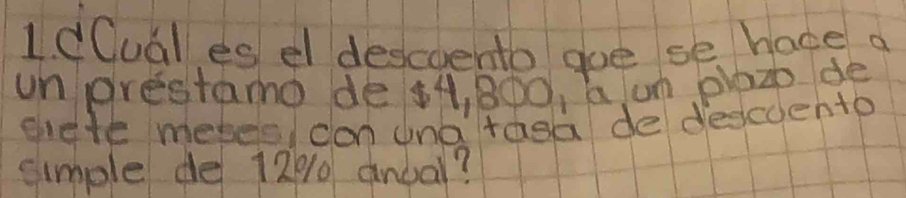 1. ¿Cuál es el descuento que se hace a
un préstamo de $4,800, a un plazo de
siete meses, con una tasa de descuento
simple de 12% anual?